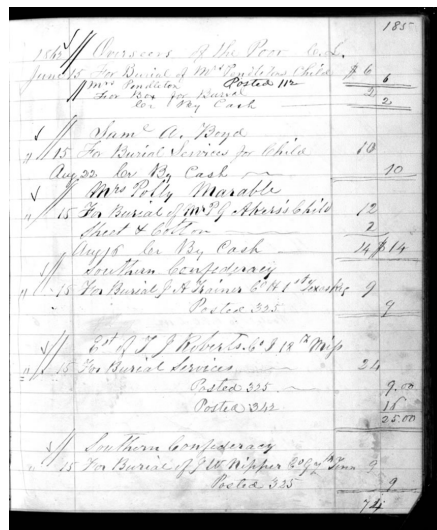 185
1863 Overseers of the Poor
June 15 For Burial of Mrs Pendletons Child $6
Mrs Pendleton Posted 112 6
For Box for Burial 2
Cr By Cash 2
Saml A. Boyd
" 15 For Burial Services for Child 10
Aug 22 Cr By Cash 10
Mrs Polly Marable
" 15 For Burial of Mr P G Akers's Child 12
Sheet & Cotton 2
Aug 16 Cr By Cash 14 $14
Southern Confederacy
" 15 For Burial J A Co H 1st Texas 9
Posted 325 9
Est of T J Roberts Co I 12 Miss
" 15 For Burial Services 24
Posted 325 9.00
Posted 342 16
25.00
Southern Confederacy
" 15 For Burial of J W Nipper Co G Tenn 9
Posted 325 9
74